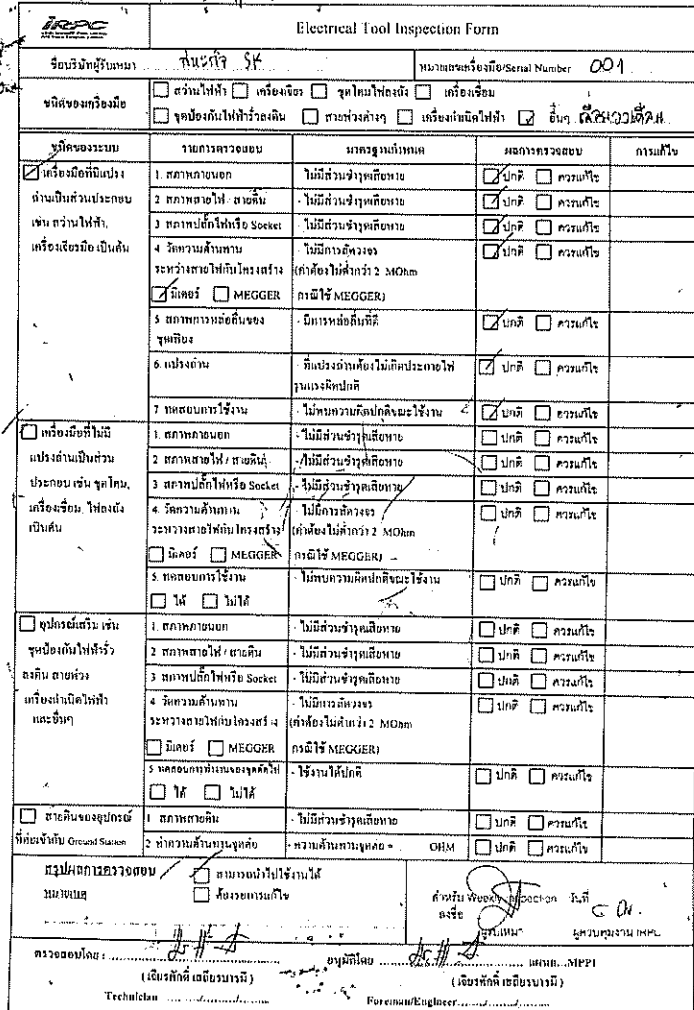 IRPC
Electrical Tool Inspection Form
ชื่อบริษัทผู้รับเหมา ธนะกิจ SK หมายเลขเครื่องมือ/Serial Number 001
ชนิดของเครื่องมือ
สว่านไฟฟ้า เครื่องเจียร ชุดโคมไฟลงถัง เครื่องเชื่อม
ชุดป้องกันไฟฟ้ารั่วลงดิน สายพ่วงต่างๆ เครื่องกำเนิดไฟฟ้า อื่นๆ
ชนิดของระบบ รายการตรวจสอบ มาตรฐานกำหนด ผลการตรวจสอบ การแก้ไข
เครื่องมือที่มีแปรงถ่านเป็นส่วนประกอบ เช่น สว่านไฟฟ้า, เครื่องเจียรมือ เป็นต้น
1. สภาพภายนอก - ไม่มีส่วนชำรุดเสียหาย ปกติ ควรแก้ไข
2 สภาพสายไฟ / สายดิน - ไม่มีส่วนชำรุดเสียหาย ปกติ ควรแก้ไข
3 สภาพปลั๊กไฟหรือ Socket - ไม่มีส่วนชำรุดเสียหาย ปกติ ควรแก้ไข
4 วัดความต้านทาน - ไม่มีการลัดวงจร ปกติ ควรแก้ไข
ระหว่างสายไฟกับโครงสร้าง (ค่าต้องไม่ต่ำกว่า 2 MOhm
มิเตอร์ MEGGER กรณีใช้ MEGGER)
5 สภาพการหล่อลื่นของ - มีการหล่อลื่นที่ดี ปกติ ควรแก้ไข
ชุดเฟือง
6. แปรงถ่าน - ที่แปรงถ่านต้องไม่เกิดประกายไฟ ปกติ ควรแก้ไข
รุนแรงผิดปกติ
7 ทดสอบการใช้งาน - ไม่พบความผิดปกติขณะใช้งาน ปกติ ควรแก้ไข
เครื่องมือที่ไม่มีแปรงถ่านเป็นส่วนประกอบ เช่น ชุดโคม, เครื่องเชื่อม, ไฟลงถัง เป็นต้น
1. สภาพภายนอก - ไม่มีส่วนชำรุดเสียหาย ปกติ ควรแก้ไข
2 สภาพสายไฟ / สายดิน - ไม่มีส่วนชำรุดเสียหาย ปกติ ควรแก้ไข
3 สภาพปลั๊กไฟหรือ Socket - ไม่มีส่วนชำรุดเสียหาย ปกติ ควรแก้ไข
4. วัดความต้านทาน - ไม่มีการลัดวงจร ปกติ ควรแก้ไข
ระหว่างสายไฟกับโครงสร้าง (ค่าต้องไม่ต่ำกว่า 2 MOhm
มิเตอร์ MEGGER กรณีใช้ MEGGER)
5. ทดสอบการใช้งาน - ไม่พบความผิดปกติขณะใช้งาน ปกติ ควรแก้ไข
ได้ ไม่ได้
อุปกรณ์เสริม เช่น ชุดป้องกันไฟฟ้ารั่วลงดิน สายพ่วง เครื่องกำเนิดไฟฟ้า และอื่นๆ
1. สภาพภายนอก - ไม่มีส่วนชำรุดเสียหาย ปกติ ควรแก้ไข
2 สภาพสายไฟ / สายดิน - ไม่มีส่วนชำรุดเสียหาย ปกติ ควรแก้ไข
3 สภาพปลั๊กไฟหรือ Socket - ไม่มีส่วนชำรุดเสียหาย ปกติ ควรแก้ไข
4 วัดความต้านทาน - ไม่มีการลัดวงจร ปกติ ควรแก้ไข
ระหว่างสายไฟกับโครงสร้าง (ค่าต้องไม่ต่ำกว่า 2 MOhm
มิเตอร์ MEGGER กรณีใช้ MEGGER)
5 ทดสอบการทำงานของชุดตัดไฟ - ใช้งานได้ปกติ ปกติ ควรแก้ไข
ได้ ไม่ได้
สายดินของอุปกรณ์ที่ต่อเข้ากับ Ground Station
1 สภาพสายดิน - ไม่มีส่วนชำรุดเสียหาย ปกติ ควรแก้ไข
2 ค่าความต้านทานจุดต่อ - ความต้านทานจุดต่อ = OHM ปกติ ควรแก้ไข
สรุปผลการตรวจสอบ สามารถนำไปใช้งานได้
หมายเหตุ ต้องรอการแก้ไข
สำหรับ Weekly Inspection วันที่
ลงชื่อ
ผู้รับเหมา ผู้ควบคุมงาน IRPC
ตรวจสอบโดย : อนุมัติโดย MPPI
(เธียรศักดิ์ เสถียรบารมี) (เธียรศักดิ์ เสถียรบารมี)
Technician Foreman/Engineer